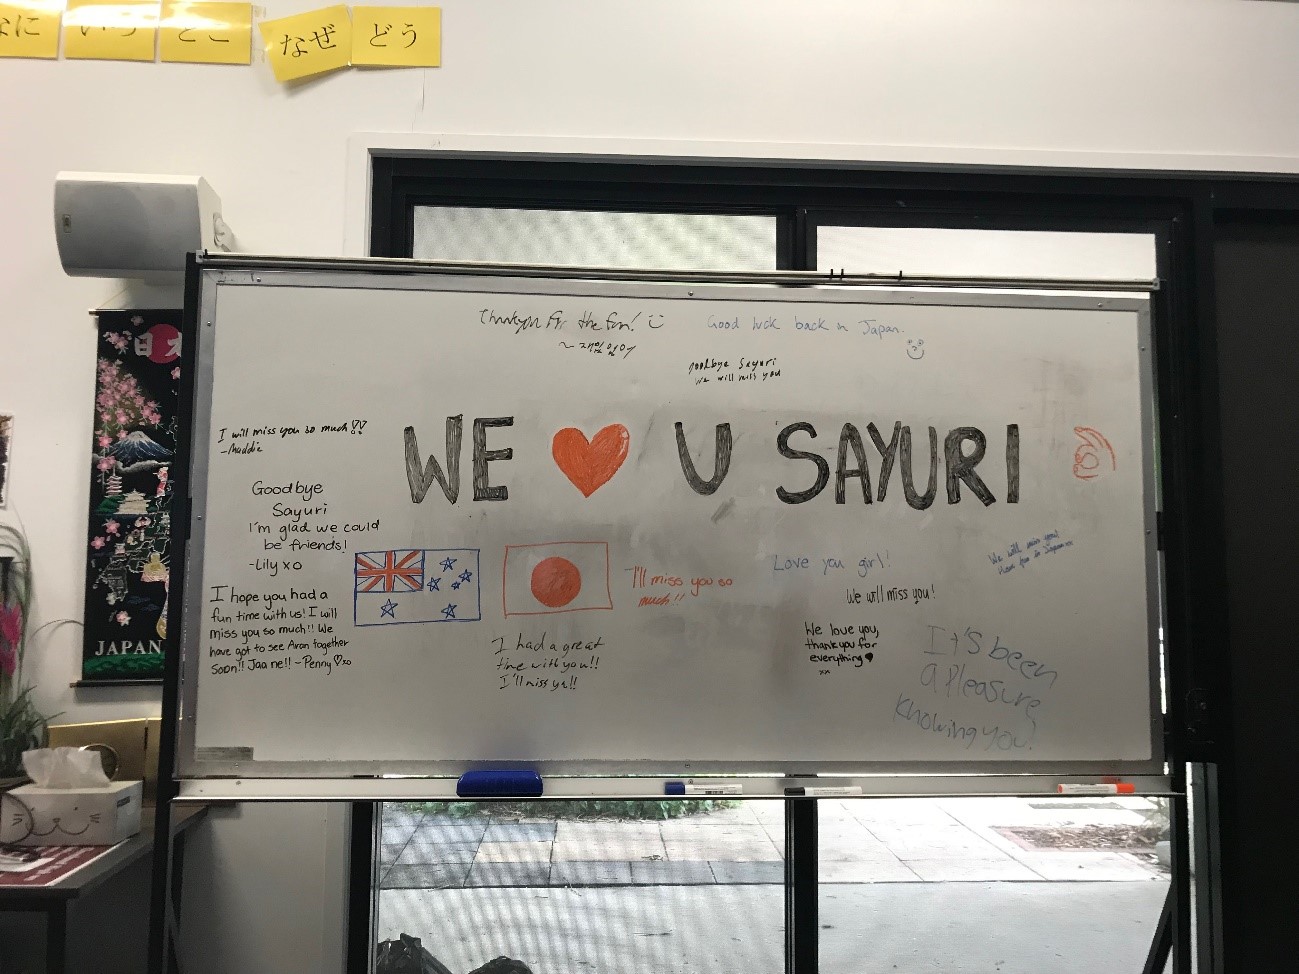 なに
いつ
どこ
なぜ
どう
日本
JAPAN
Thankyou for the fun!
Good luck back in Japan.
goodbye Sayuri
we will miss you
I will miss you so much!!
-Maddie
WE ♥ U SAYURI
Goodbye
Sayuri
I'm glad we could
be friends!
-Lily xo
I hope you had a
fun time with us! I will
miss you so much!! We
have got to see Aran together
soon!! Jaa ne!! -Penny ♡xo
I'll miss you so
much!!
I had a great
time with you!!
I'll miss ya!!
Love you girl!
We will miss you!
We will miss you!
Have fun in Japan
We love you,
thankyou for
everything ♥
xx
It's been
a pleasure
knowing you!